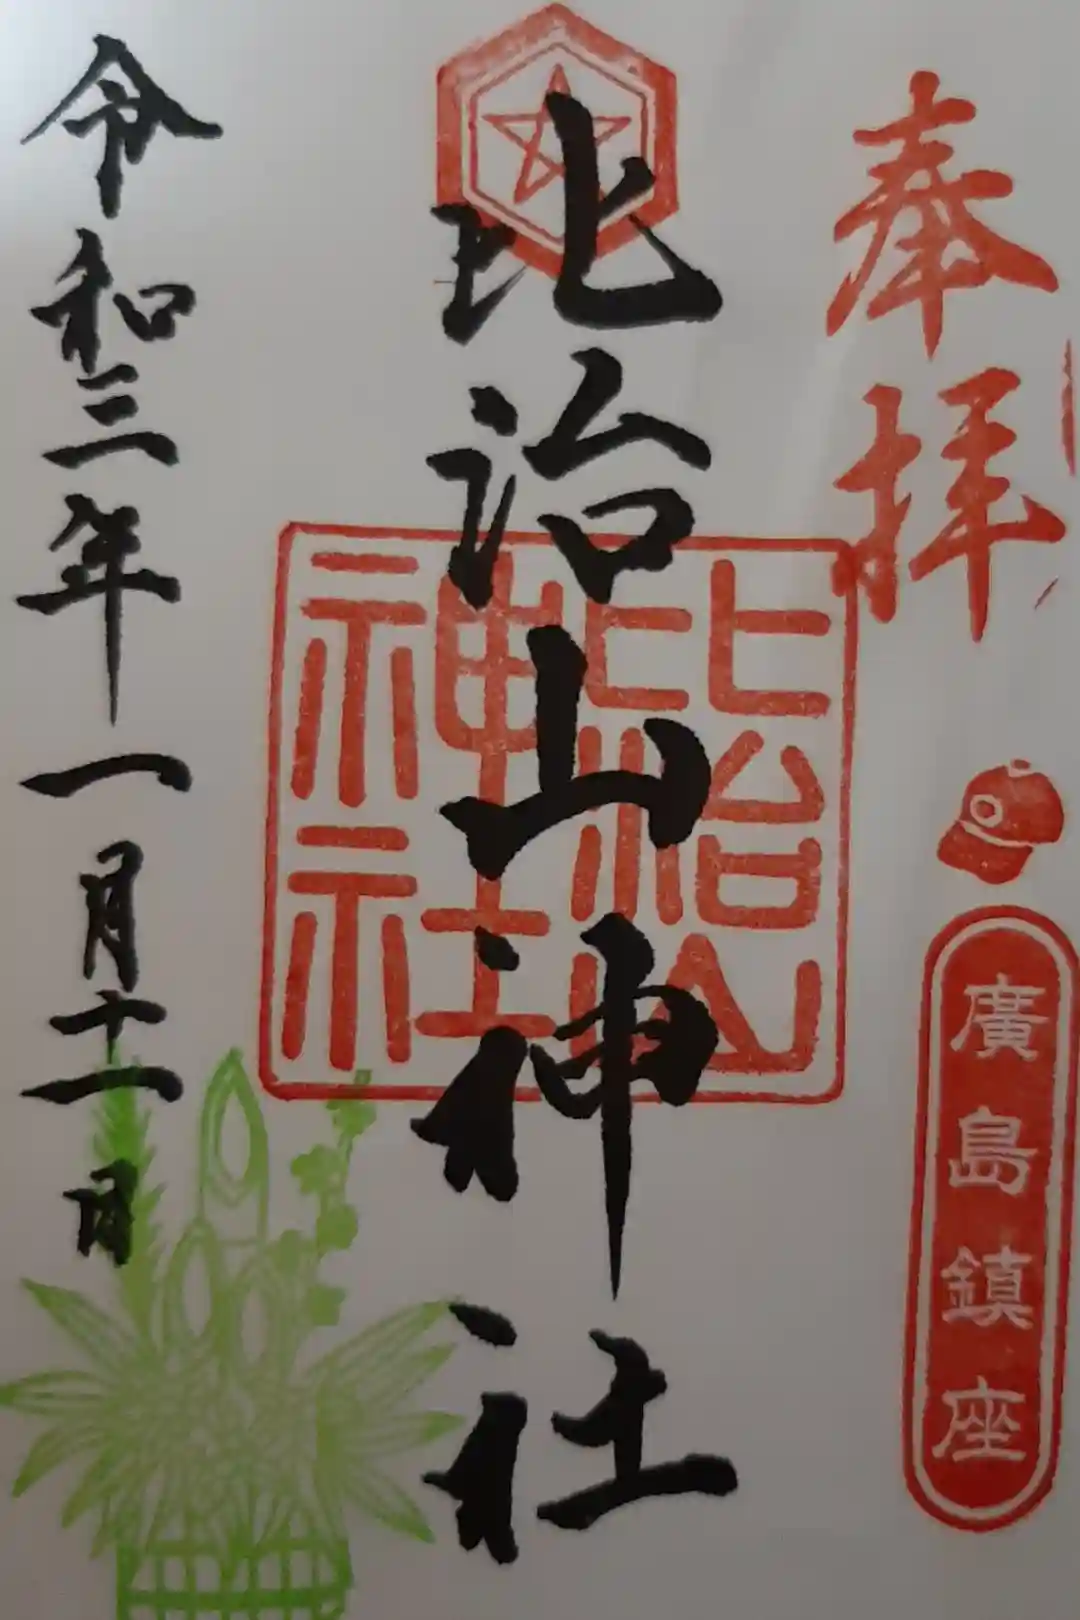 奉拝
廣島鎮座
比治山神社
比治山
神社
令和三年一月十一日